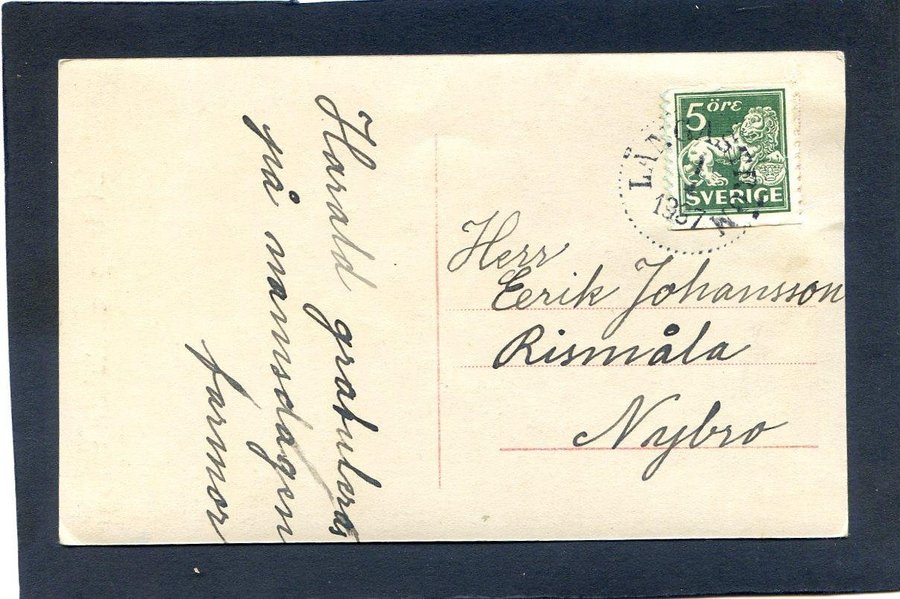 Harald gratuleras
på namnsdagen
farmor
5 öre
SVERIGE
1937
Herr
Eerik Johansson
Rismåla
Nybro